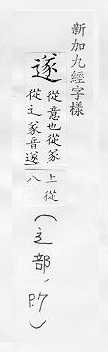 新加九經字樣
遂
從意也從㒸
從辶㒸音遂
上從
八
(辶部,P.7)